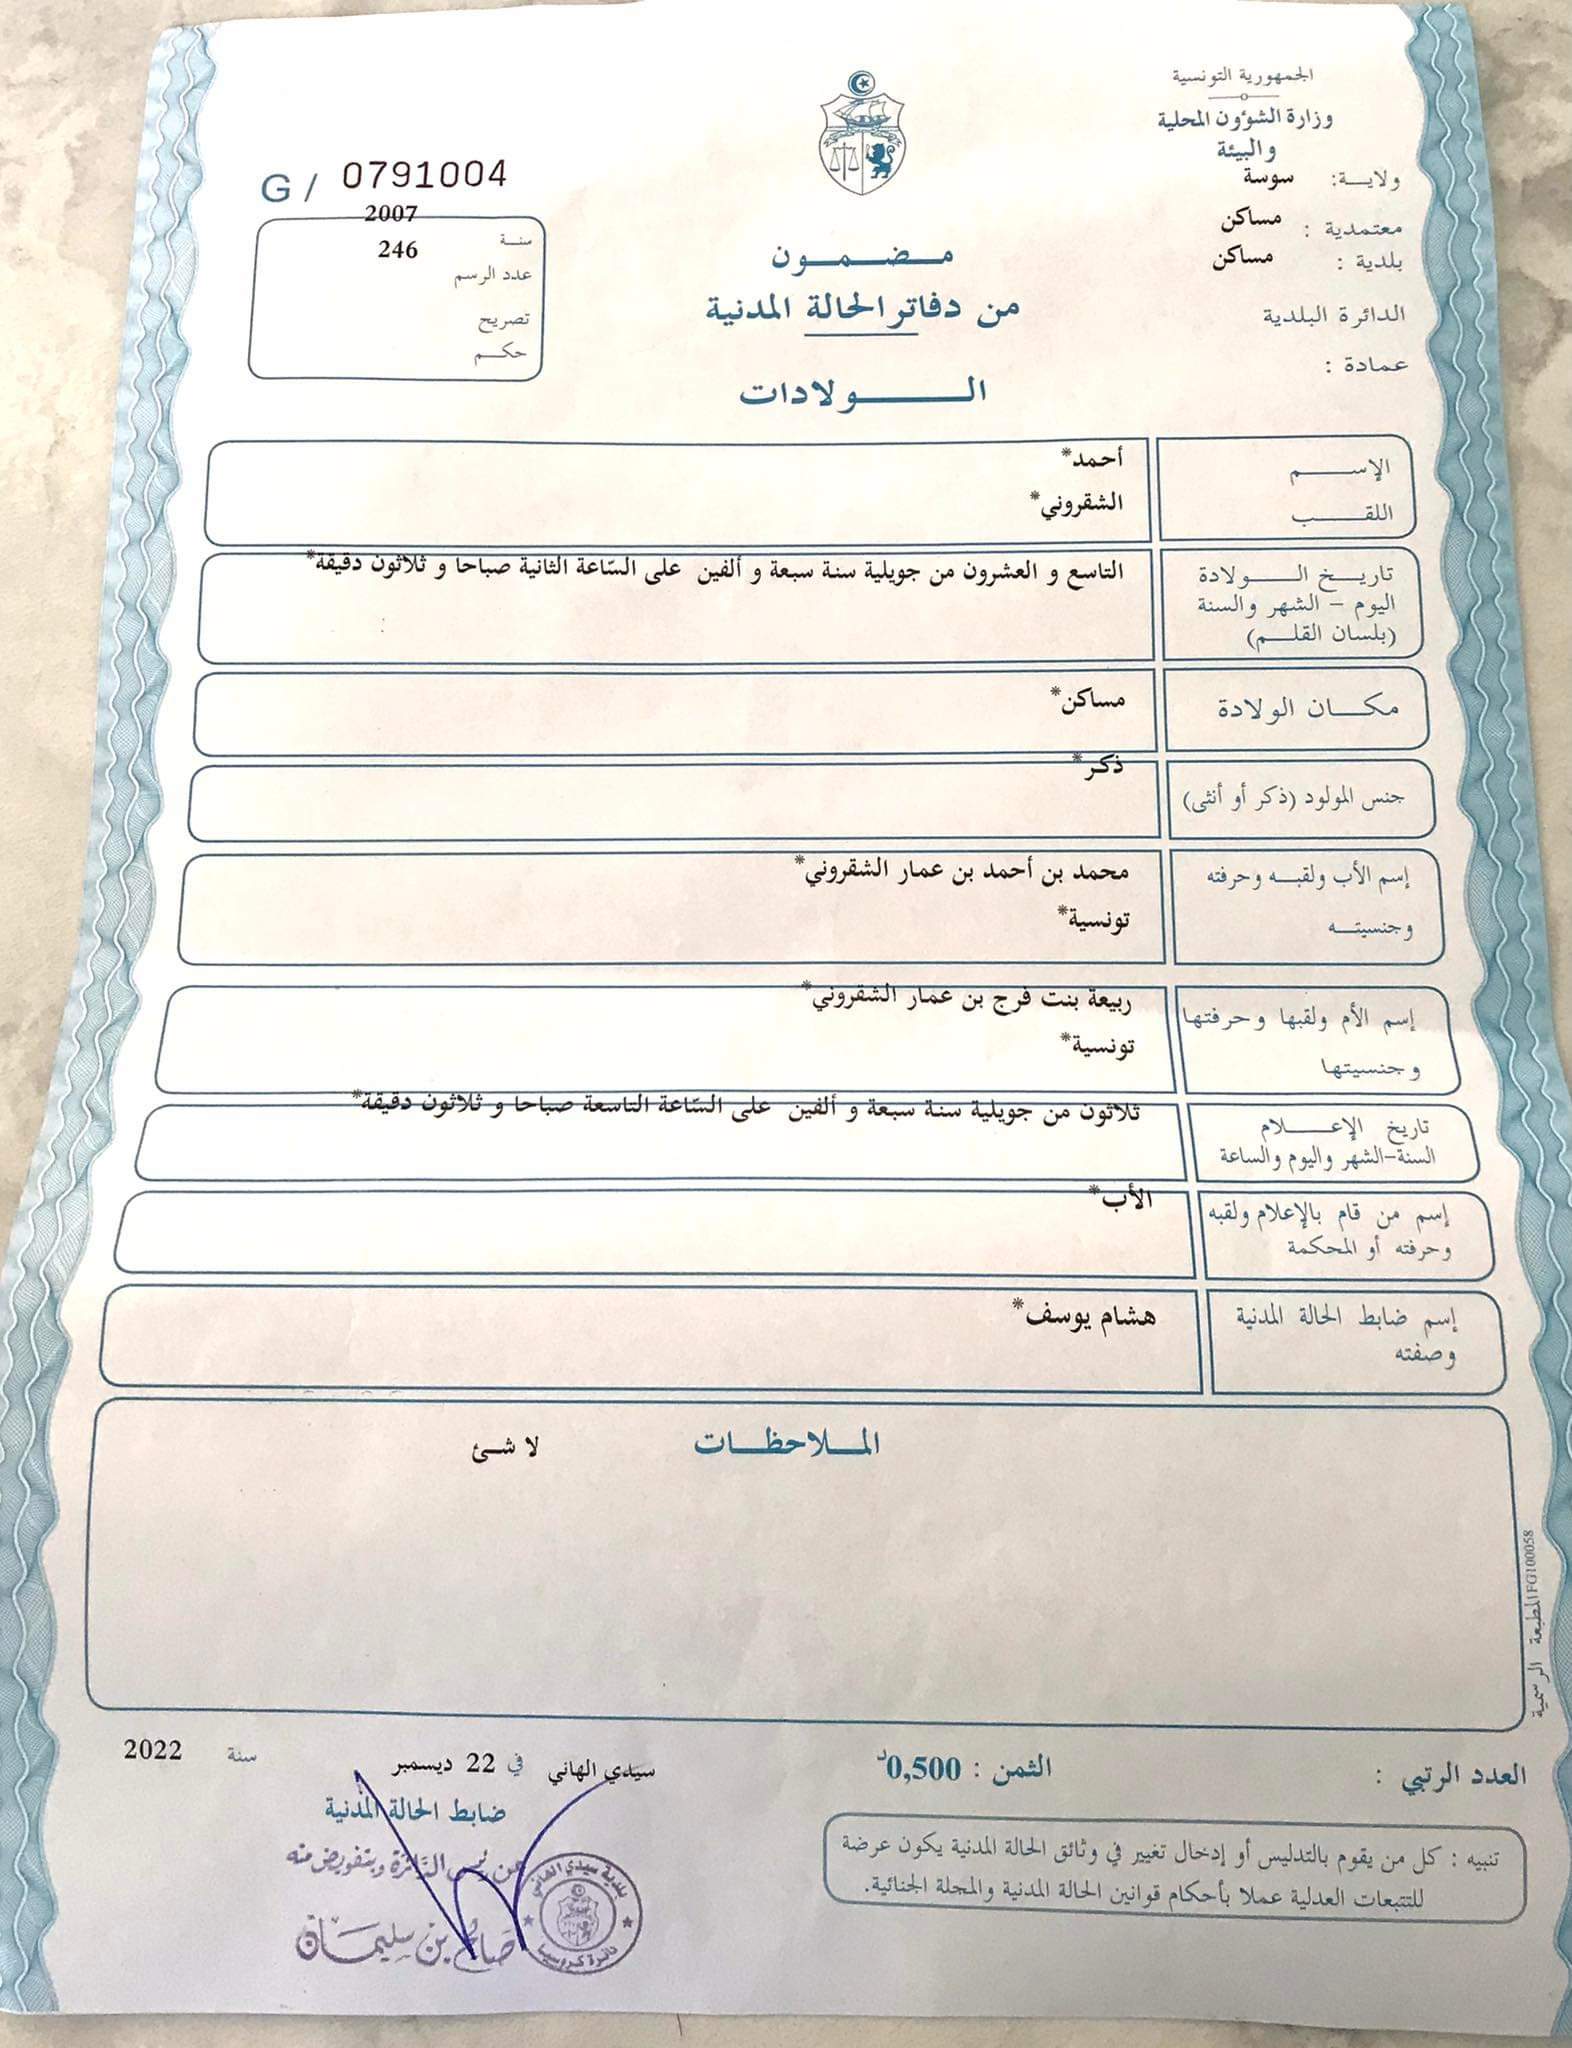 الجمهورية التونسية
وزارة الشؤون المحلية
والبيئة
ولايـــة: سوسة
معتمدية : مساكن
بلدية : مساكن
الدائرة البلدية
عمادة :
G / 0791004
سنـة 2007
عدد الرسم 246
تصريح
حكـــم
مـــضـــمـــون
من دفاتر الحالة المدنية
الــــــولادات
الإســـــــم أحمد*
اللقـــــب الشقروني*
تاريـــخ الــــولادة التاسع و العشرون من جويلية سنة سبعة و ألفين على السّاعة الثانية صباحا و ثلاثون دقيقة*
اليوم - الشهر والسنة
(بلسان القلـــم)
مكـــان الولادة مساكن*
جنس المولود (ذكر أو أنثى) ذكر*
إسم الأب ولقبـــه وحرفته محمد بن أحمد بن عمار الشقروني*
وجنسيتـــه تونسية*
إسم الأم ولقبها وحرفتها ربيعة بنت فرج بن عمار الشقروني*
وجنسيتها تونسية*
تاريخ الإعـــــلام ثلاثون من جويلية سنة سبعة و ألفين على السّاعة التاسعة صباحا و ثلاثون دقيقة*
السنة-الشهر واليوم والساعة
إسم من قام بالإعلام ولقبه الأب*
وحرفته أو المحكمة
إسم ضابط الحالة المدنية هشام يوسف*
وصفته
الملاحظـــات لا شئ
المطبعة الرسمية FG100058
العدد الرتبي :
الثمن : 0,500د
سيدي الهاني في 22 ديسمبر سنة 2022
ضابط الحالة المدنية
عن رئيس الدائرة وبتفويض منه
صالح بن سليمان
بلدية سيدي الهاني
دائرة كروسيا
تنبيه : كل من يقوم بالتدليس أو إدخال تغيير في وثائق الحالة المدنية يكون عرضة
للتتبعات العدلية عملا بأحكام قوانين الحالة المدنية والمجلة الجنائية.